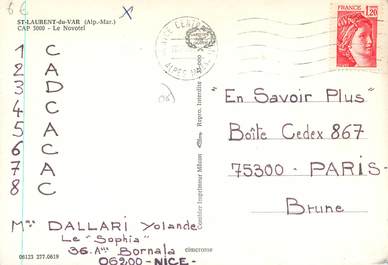 6 €
X
ST-LAURENT-du-VAR (Alp.-Mar.)
CAP 3000 - Le Novotel
1 C
2 A
3 D
4 C
5 A
6 C
7 A
8 C
Mme DALLARI Yolande
Le "Sophia"
36 Ave Bornala
06200 - NICE -
06123 277.0619
cimcrome
Combier Imprimeur Mâcon
Repro. Interdite
NICE CENTRE
ALPES
FRANCE
1,20
"En Savoir Plus"
Boîte Cedex 867
75300 - PARIS-
Brune